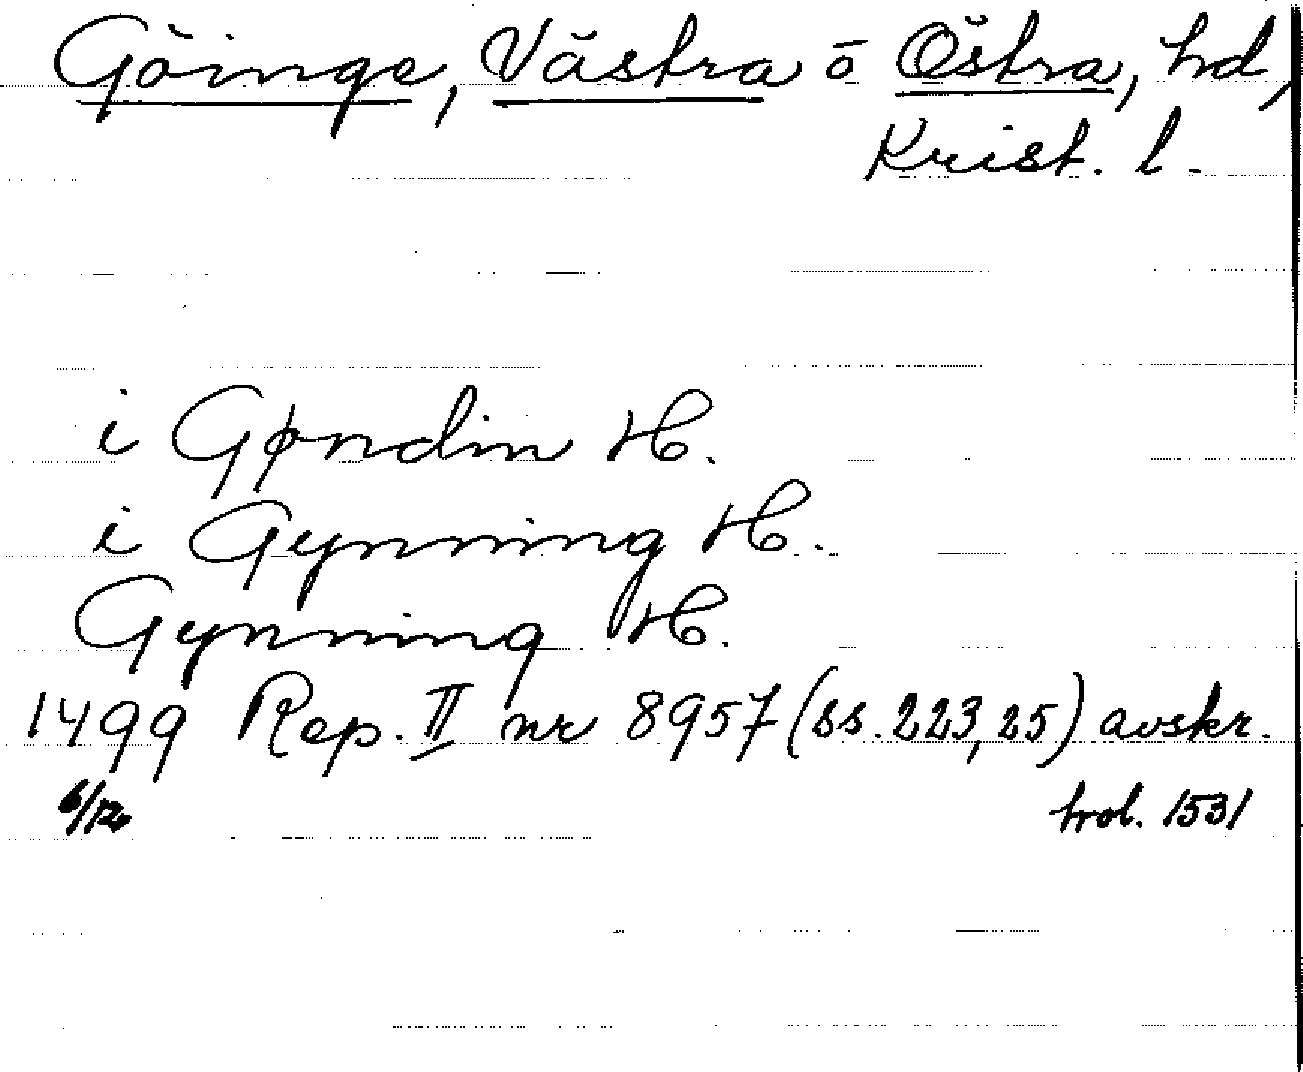 Göinge, Västra o Östra, hd,
Krist. l.
i Gøndin H.
i Gynning H.
Gynning H.
1499 Rep. II nr 8957 (ss. 223, 25) avskr.
6/12 trol. 1531